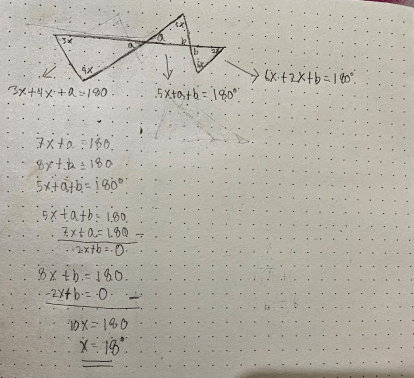 3x
4x
a
a
5x
b
b
2x
6x
3x+4x+a=180
5x+a+b=180°
6x+2x+b=180°
7x+a=180
8x+b=180
5x+a+b=180°
5x+a+b=180
7x+a=180 -
-2x+b=0
8x+b=180
-2x+b=0 -
10x=180
x=18°